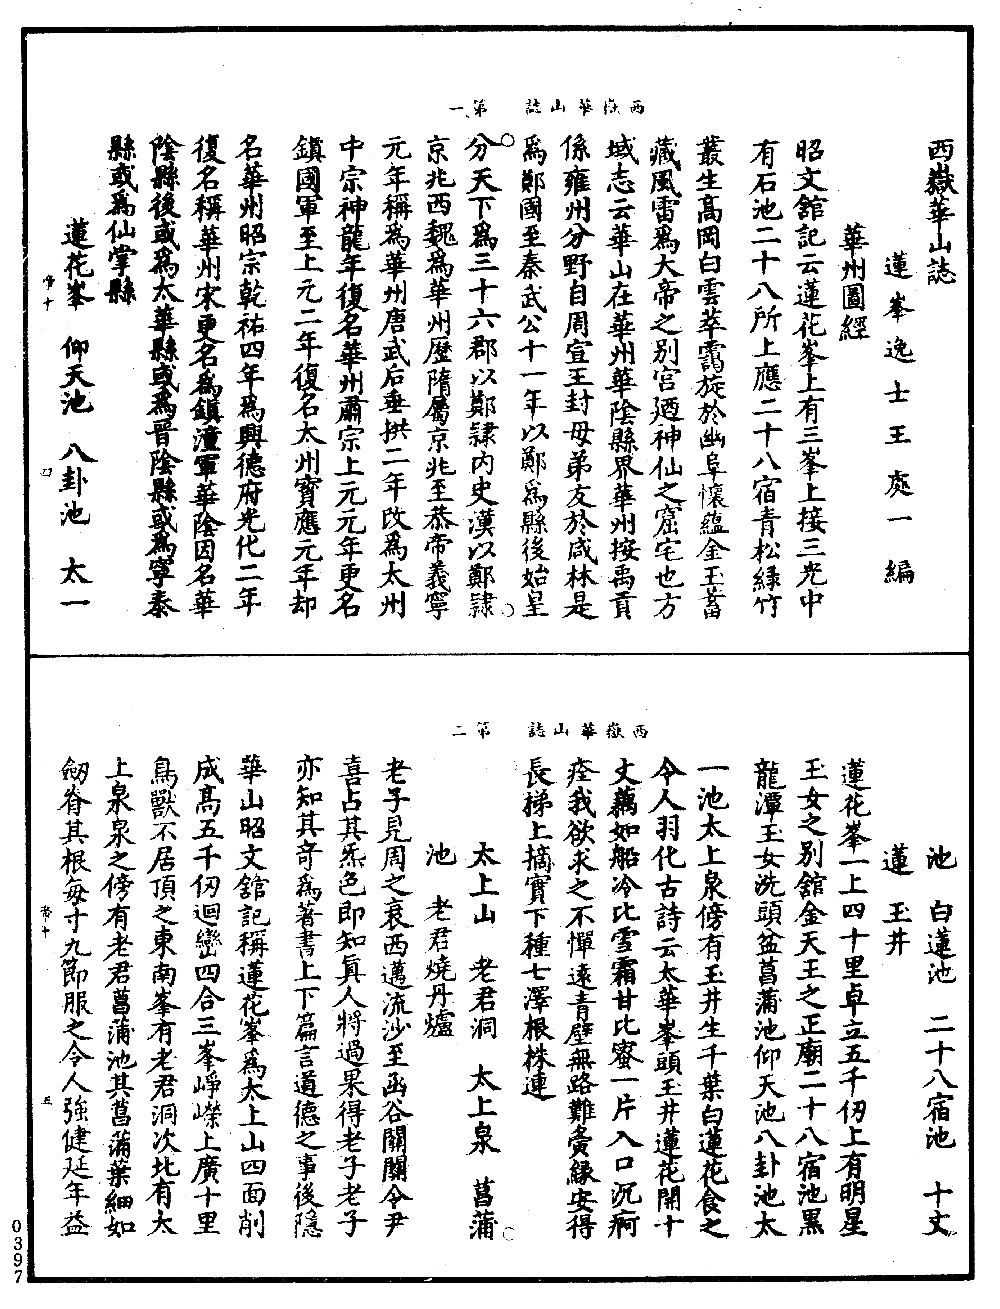 西嶽華山誌　第一
西嶽華山誌
蓮峯逸士王處一編
華州圖經
昭文舘記云蓮花峯上有三峯上接三光中
有石池二十八所上應二十八宿青松緑竹
叢生髙岡白雲萃靄旋於幽阜懷藴金玉蓄
藏風雷爲大帝之别宫廼神仙之窟宅也方
域志云華山在華州華陰縣界華州按禹貢
係雍州分野自周宣王封母弟友於咸林是
爲鄭國至秦武公十一年以鄭爲縣後始皇
分天下爲三十六郡以鄭隷内史漢以鄭隷
京兆西魏爲華州歴隋屬京兆至恭帝義寧
元年稱爲華州唐武后垂拱二年改爲太州
中宗神龍年復名華州肅宗上元元年更名
鎮國軍至上元二年復名太州寳應元年却
名華州昭宗乾祐四年爲興德府光化二年
復名稱華州宋更名爲鎮潼軍華陰因名華
陰縣後或爲太華縣或爲晋陰縣或爲寧秦
縣或爲仙掌縣
蓮花峯　仰天池　八卦池　太一
四
西嶽華山誌　第二
池　白蓮池　二十八宿池　十丈
蓮　玉井
蓮花峯一上四十里卓立五千仭上有明星
玉女之别舘金天王之正廟二十八宿池黒
龍潭玉女洗頭盆菖蒲池仰天池八卦池太
一池太上泉傍有玉井生千葉白蓮花食之
令人羽化古詩云太華峯頭玉井蓮花開十
丈藕如船冷比雪霜甘比蜜一片入口沉痾
痊我欲求之不憚遠青壁無路難夤縁安得
長梯上摘實下種七澤根株連
太上山　老君洞　太上泉　菖蒲
池　老君燒丹爐
老子見周之衰西邁流沙至函谷關關令尹
喜占其炁色即知真人將過果得老子老子
亦知其竒爲著書上下篇言道德之事後隱
華山昭文舘記稱蓮花峯爲太上山四面削
成髙五千仭迴巒四合三峯崢嶸上廣十里
鳥獸不居頂之東南峯有老君洞次北有太
上泉泉之傍有老君菖蒲池其菖蒲葉細如
劒脊其根每寸九節服之令人強健延年益
五
0397